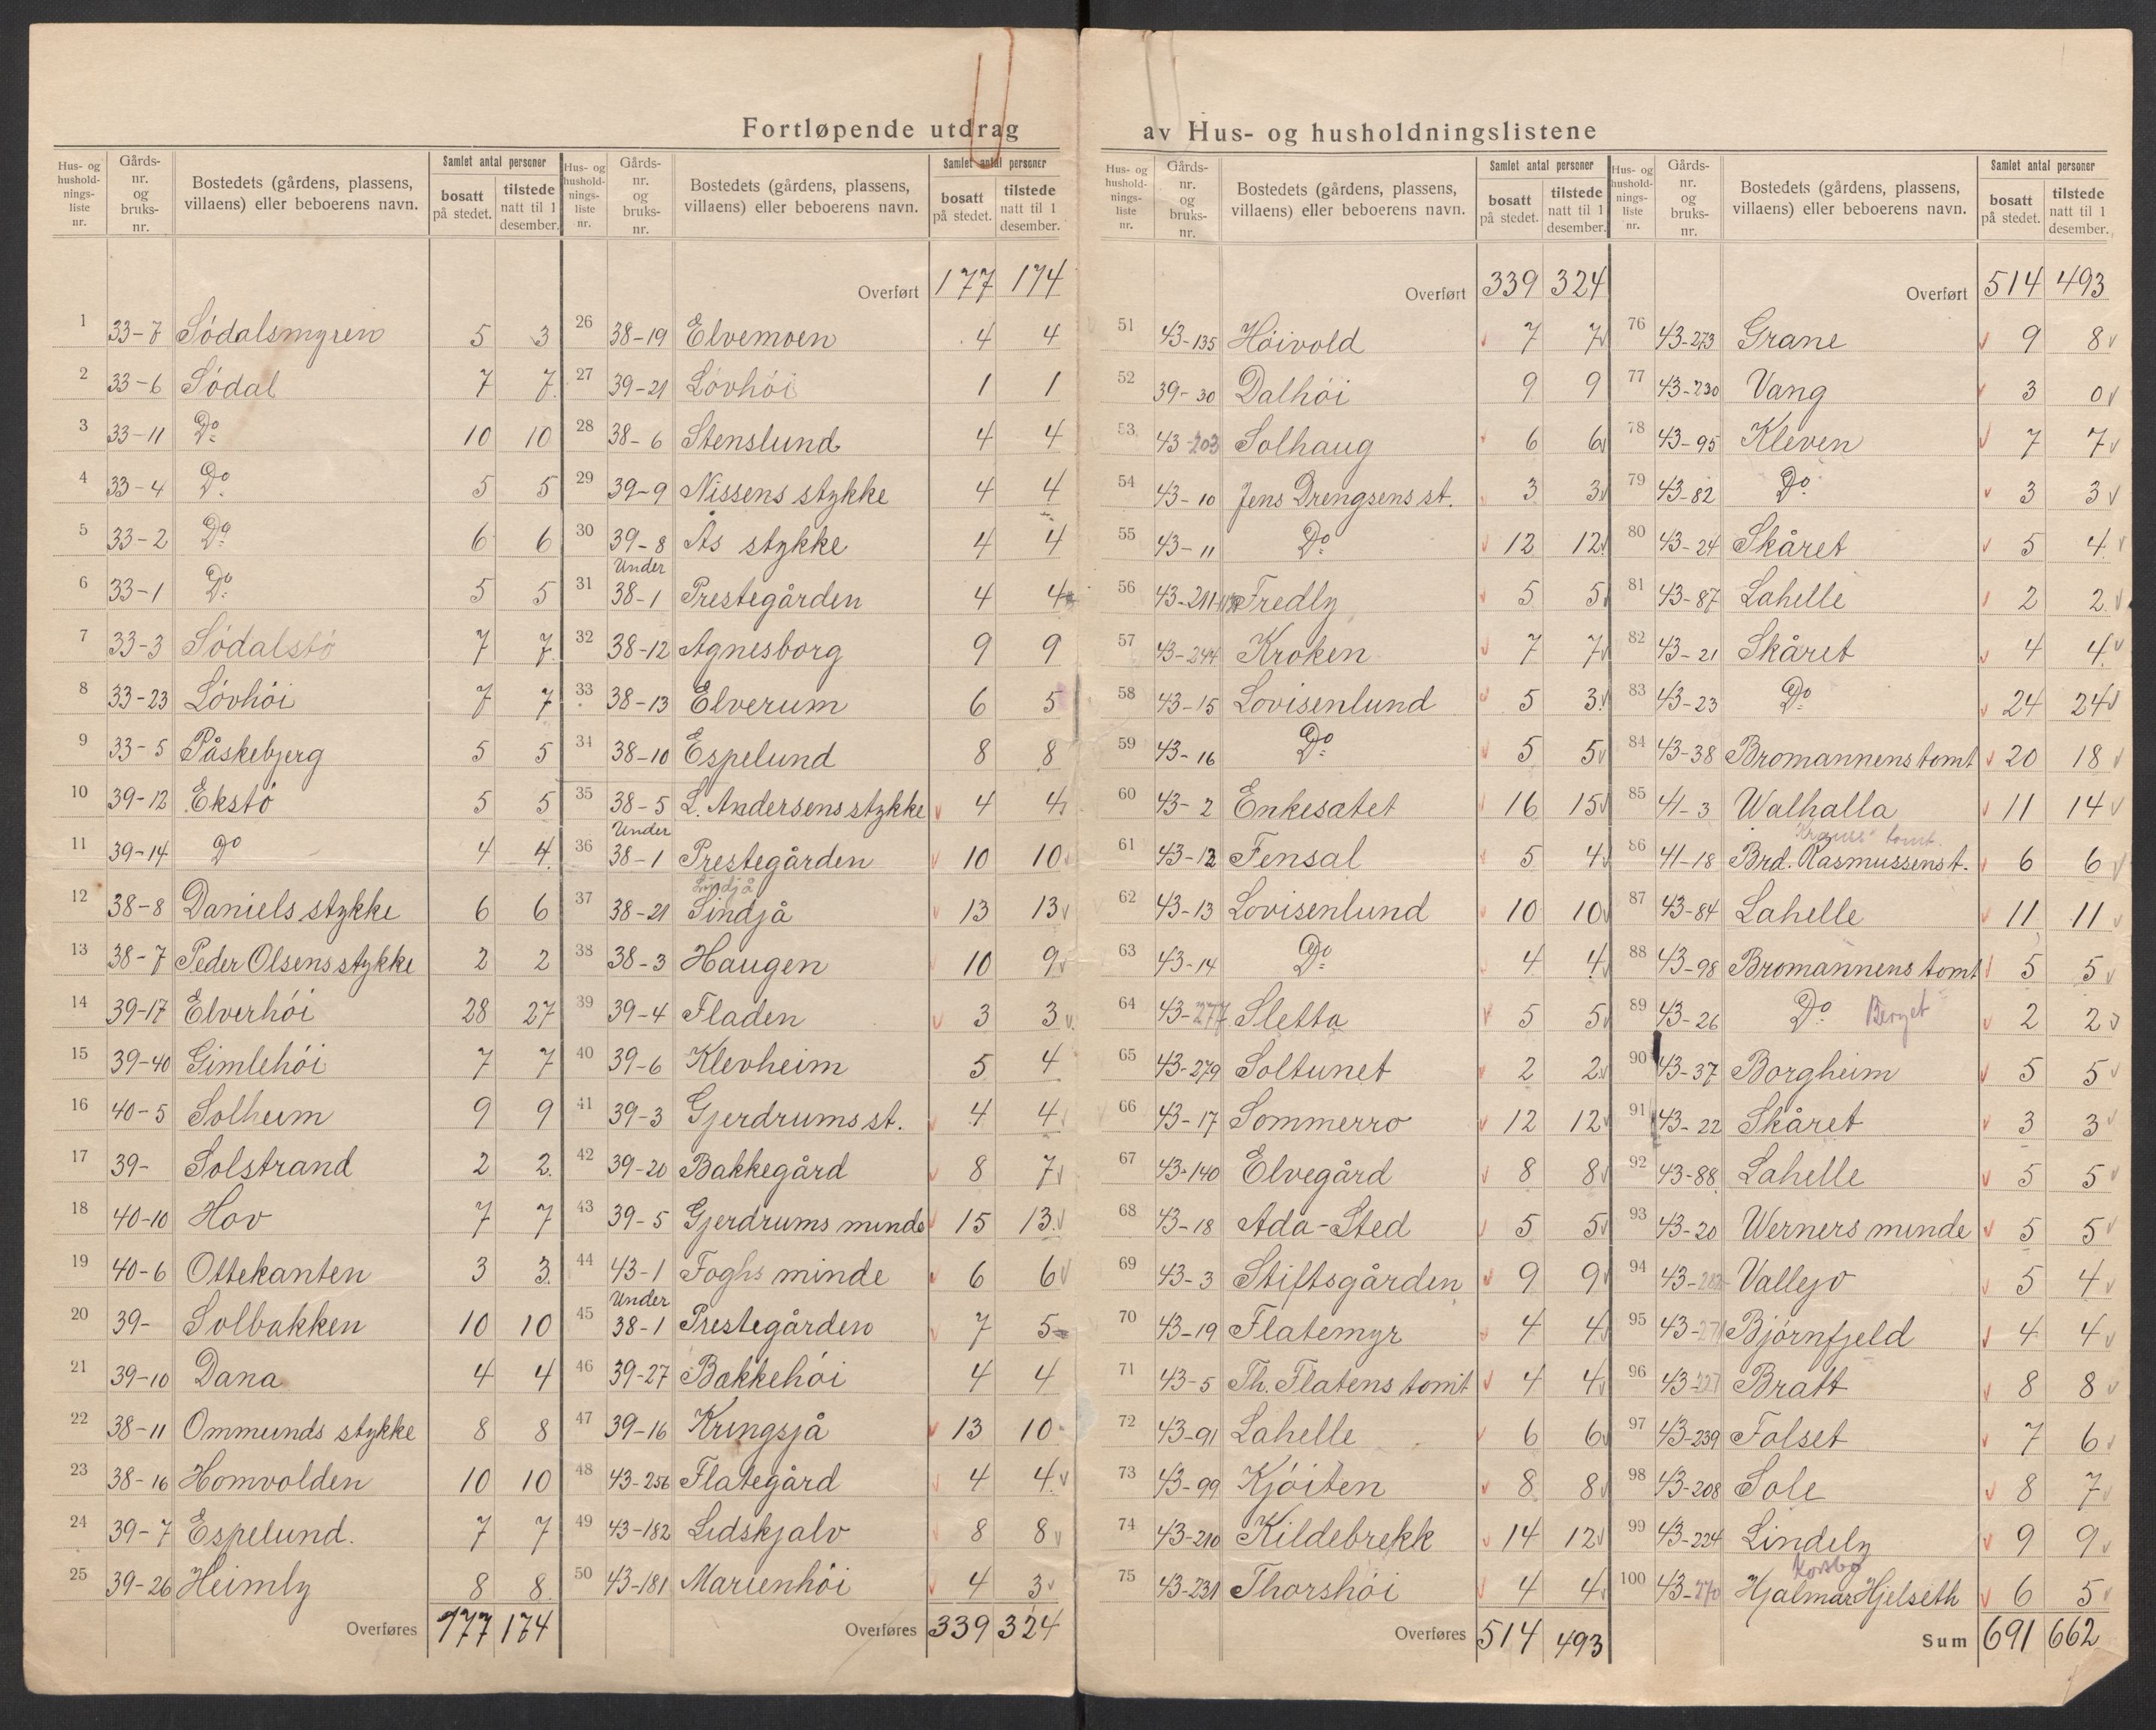 Fortløpende utdrag av Hus- og husholdningslistene
Hus- og husholdnings-liste nr. | Gårds-nr. og bruks-nr. | Bostedets (gårdens, plassens, villaens) eller beboerens navn. | Samlet antal personer bosatt på stedet. | tilstede natt til 1 desember.
1 33-7 Södalsmyren 5 3
2 33-6 Södal 7 7
3 33-11 Do 10 10
4 33-4 Do 5 5
5 33-2 Do 6 6
6 33-1 Do 5 5
7 33-3 Södalstö 7 7
8 33-23 Lövhöi 7 7
9 33-5 Påskebjerg 5 5
10 39-12 Ekstö 5 5
11 39-14 Do 4 4
12 38-8 Daniels stykke 6 6
13 38-7 Peder Olsens stykke 2 2
14 39-17 Elverhöi 28 27
15 39-40 Gimlehöi 7 7
16 40-5 Solheim 9 9
17 39- Solstrand 2 2
18 40-10 Hov 7 7
19 40-6 Ottekanten 3 3
20 39- Solbakken 10 10
21 39-10 Dana 4 4
22 38-11 Ommunds stykke 8 8
23 38-16 Homvolden 10 10
24 39-7 Espelund. 7 7
25 39-26 Heimly 8 8
Overføres 177 174
Hus- og husholdnings-liste nr. | Gårds-nr. og bruks-nr. | Bostedets (gårdens, plassens, villaens) eller beboerens navn. | Samlet antal personer bosatt på stedet. | tilstede natt til 1 desember.
Overført 177 174
26 38-19 Elvemoen 4 4
27 39-21 Lövhöi 1 1
28 38-6 Stenslund 4 4
29 39-9 Nissens stykke 4 4
30 39-8 Ås stykke 4 4
31 Under 38-1 Prestegården 4 4
32 38-12 Agnesborg 9 9
33 38-13 Elverum 6 5
34 38-10 Espelund 8 8
35 38-5 L. Andersens stykke 4 4
36 Under 38-1 Prestegården 10 10
37 38-21 Sindjå 13 13
38 38-3 Haugen 10 9
39 39-4 Fladen 3 3
40 39-6 Klevheim 5 4
41 39-3 Gjerdrums st. 4 4
42 39-20 Bakkegård 8 7
43 39-5 Gjerdrums minde 15 13
44 43-1 Foghs minde 6 6
45 Under 38-1 Prestegården 7 5
46 39-27 Bakkehöi 4 4
47 39-16 Kringsjå 13 10
48 43-256 Flategård 4 4
49 43-182 Lidskjalv 8 8
50 43-181 Marienhöi 4 3
Overføres 339 324
Hus- og husholdnings-liste nr. | Gårds-nr. og bruks-nr. | Bostedets (gårdens, plassens, villaens) eller beboerens navn. | Samlet antal personer bosatt på stedet. | tilstede natt til 1 desember.
Overført 339 324
51 43-135 Höivold 7 7
52 39-30 Dalhöi 9 9
53 43-203 Solhaug 6 6
54 43-10 Jens Drengsens st. 3 3
55 43-11 Do 12 12
56 43-211 Fredly 5 5
57 43-244 Kroken 7 7
58 43-15 Lovisenlund 5 3
59 43-16 Do 5 5
60 43-2 Enkesætet 16 15
61 43-12 Fensal 5 4
62 43-13 Lovisenlund 10 10
63 43-14 Do 4 4
64 43-277 Sletta 5 5
65 43-279 Soltunet 2 2
66 43-17 Sommerro 12 12
67 43-140 Elvegård 8 8
68 43-18 Ada-Sted 5 5
69 43-3 Stiftsgården 9 9
70 43-19 Flatemyr 4 4
71 43-5 Th. Flatens tomt 4 4
72 43-91 Lahelle 6 6
73 43-99 Kjöiten 8 8
74 43-210 Kildebrekk 14 12
75 43-231 Thorshöi 4 4
Overføres 514 493
Hus- og husholdnings-liste nr. | Gårds-nr. og bruks-nr. | Bostedets (gårdens, plassens, villaens) eller beboerens navn. | Samlet antal personer bosatt på stedet. | tilstede natt til 1 desember.
Overført 514 493
76 43-273 Grane 9 8
77 43-230 Vang 3 0
78 43-95 Kleven 7 7
79 43-82 Do 3 3
80 43-24 Skåret 5 4
81 43-87 Lahelle 2 2
82 43-21 Skåret 4 4
83 43-23 Do 24 24
84 43-38 Bromannens tomt 20 18
85 41-3 Walhalla 11 14
tomt.
86 41-18 Brd. Rasmussens t. 6 6
87 43-84 Lahelle 11 11
88 43-98 Bromannens tomt 5 5
89 43-26 Do Berget 2 2
90 43-37 Borgheim 5 5
91 43-22 Skåret 3 3
92 43-88 Lahelle 5 5
93 43-20 Werners minde 5 5
94 43- Vallejo 5 4
95 43- Björnfjeld 4 4
96 43-227 Bratt 8 8
97 43-239 Folset 7 6
98 43-208 Sole 8 7
99 43-224 Lindely 9 9
Korsbo
100 43-270 Hjalmar Hjelseth 6 5
Sum 691 662